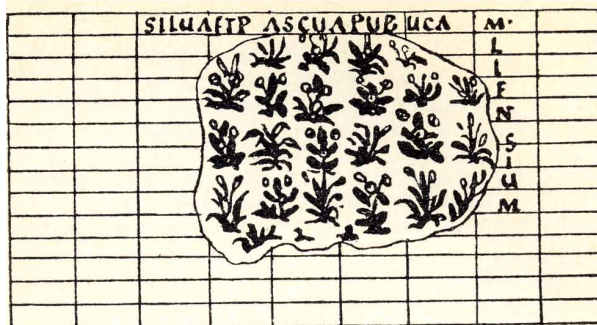 SILUAETP ASCUAPUB LICA
M·LIENSIUM